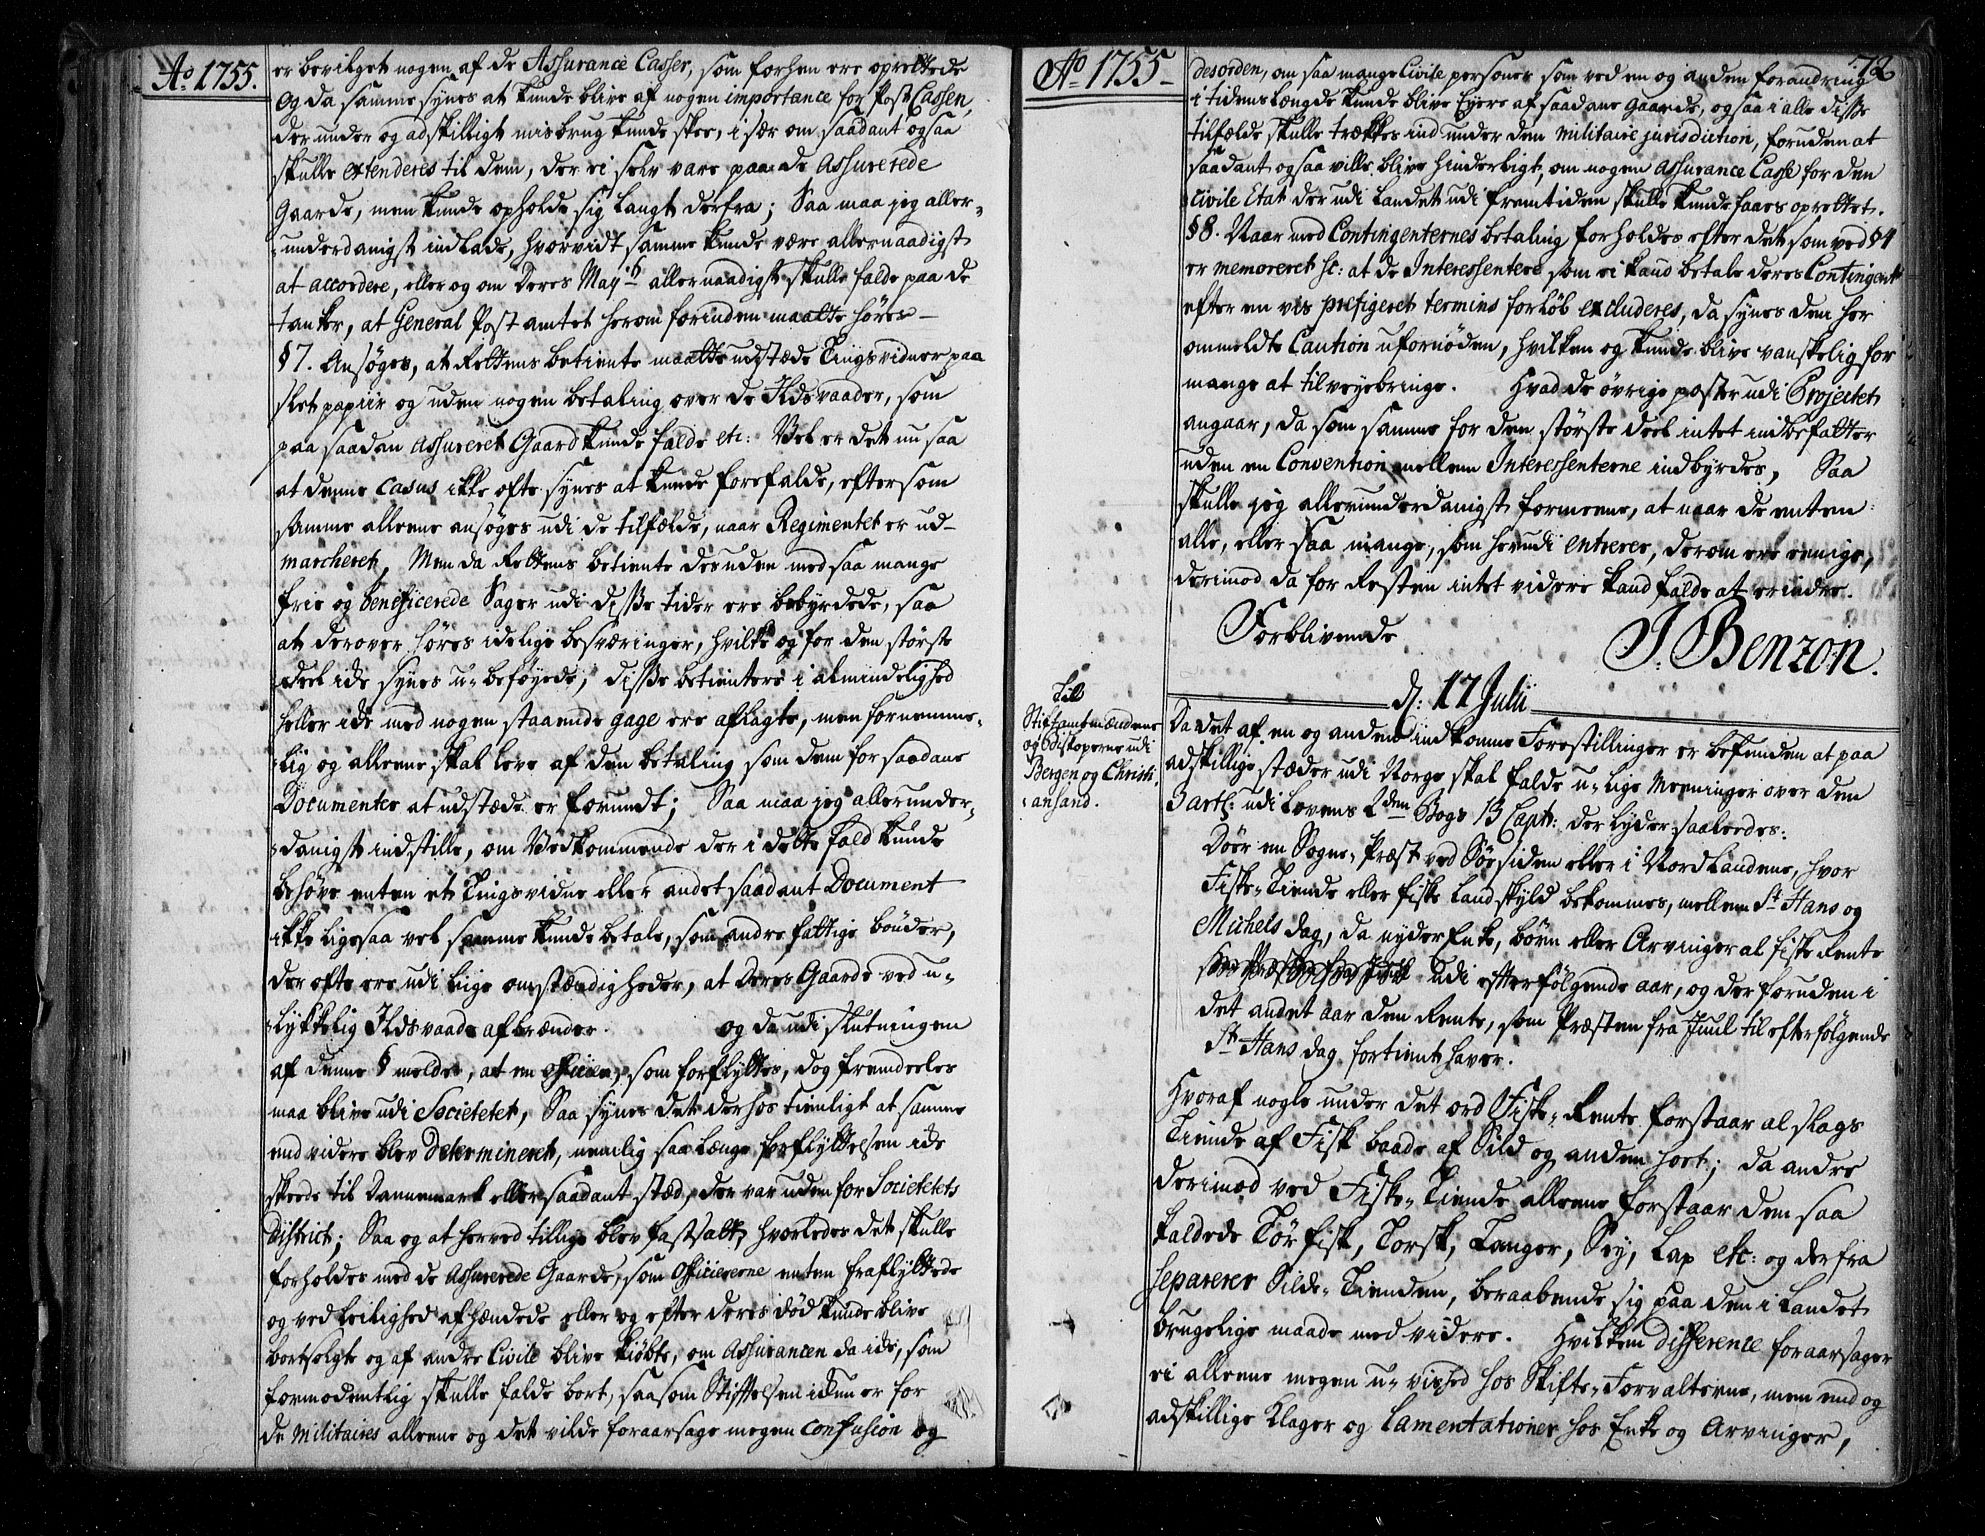 Ao 1755.
er bevilget nogen af de Assurance Casser, som forhen ere oprettede
Og da samme synes at kunde blive af nogen importance for Post Cassen,
der under og adskilligt misbrug kunde skee, i sær om saadant ogsaa
skulle extenderes til dem, der ei selv vare paa de Assurerede
Gaarde, men kunde opholde sig langt derfra; Saa maa jeg aller-
underdanigst indlade, hvorvidt samme kunde være allernaadigst
at accordere, eller og om Deres May:ts allernaadigst skulle falde paa de
tanker, at General Post amtet herom forinden maatte høres
§7. Ansøges, at Rettens betiente maatte udstæde Tingsvidner paa
slet papiir og uden nogen betaling over de Ildsvaader, som
paa saadan Assureret Gaard kunde falde etc: Vel er det nu saa
at denne Casus ikke ofte synes at kunde forefalde, eftersom
samme alleene ansøges udi de tilfælde, naar Regimentet er ud-
marcheret, Men da Rettens betiente desuden med saa mange
frie og beneficerede Sager udi disse tider ere bebyrdede, saa
at derover høres idelige besværinger, hvilke og for den største
deel ide synes u-beføyede, disse betientere i almindelighed
heller ide med nogen staaende gage ere aflagte, men fornemme-
lig og alleene skal leve af den betaling som dem for saadane
Documenter at udstæde er forundt; Saa maa jeg allerunder-
danigst indstille, om Vedkommende der i dette fald kunde
behøve enten et Tingsvidne eller andet saadant Document
ikke ligesaa vel samme kunde betale, som andre fattige bønder,
der ofte ere udi liige omstændigheder, at deres Gaarde ved u-
lykkelig Ildsvaade afbrænder. og da udi slutningen
af denne § meldes, at en officier, som forflyttes, dog fremdeeles
maa blive udi Societetet, Saa synes det derhos tienligt at samme
end videre blev determineret, nemlig saa længe forflyttelsen ide
skeede til Dannemark eller saadant stæd, der var uden for Societetets
District; Saa og at herved tillige blev fastsatt, hvorledes det skulle
forholdes med de Assurerede Gaarde, som Officiererne enten fraflyttede
og ved leilighed afhændede eller og efter deres død kunde blive
bortsolgte og af andre Civile blive kiøbte, om Assurancen da ide, som
formodentlig skulle falde bort, saasom Stiftelsen ikkun er for
de Militaires alleene og det vilde foraarsage megen confusion og
Ao 1755
72
desorden, om saa mange Civile personer som ved en og anden forandring
i tidens længde kunde blive Eyere af saadane Gaarde, ogsaa i alle disse
tilfælde skulle trækkes ind under den militaire jurisdiction, foruden at
saadant ogsaa ville blive hinderligt, om nogen Assurance Casse for den
Civile Etat der udi Landet udi fremtiden skulle kunde faaes oprettet.
§8. Naar med Contingenternes betaling forholdes efter det som ved §4
er memoreret sc: at de Interessentere som ei kand betale deres Contingent
efter en vis prefigeret termins forløb excluderes, da synes den her
ommeldte Caution ufornöden, hvilken og kunde blive vanskelig for
mange at tilveyebringe. Hvad de øvrige poster udi Projectet
angaar, da som samme for den største deel intet indbefatter
uden en Convention mellem Interessenterne indbyrdes, Saa
skulle jeg allerunderdanigst formeene, at naar de enten
alle, eller saa mange, som herudi entrerer, derom ere eenige,
derimod da for Resten intet videre kand falde at erindre.
Forblivende
J. Benzon.
d: 17 Julii
Til
Stiftamtmændene
og Biskoperne udi
Bergen og Christi-
ansand.
Da det af en og anden indkomne Forestillinger er befunden at paa
adskillige stæder udi Norge skal falde u-lige Meeninger over den
3 artl: udi Lovens 2den Bogs 13 Capt: der lyder saaleedes:
Döer en Sogne-Præst ved Söesiden eller i Nordlandene, hvor
Fiske-Tiende eller fiske Landskyld bekommes, mellem St Hans og
Michels dag, da nyder Enke, børn eller Arvinger al fiske Rente
udi efterfølgende aar, og der foruden i
det andet aar den Rente, som Præsten fra Juul til efterfølgende
St Hans dag fortient haver.
Hvoraf nogle under det ord Fiske-Rente forstaar al slags
Tiende af Fisk baade af Sild og anden sort; da andre
derimod ved Fiske-Tiende alleene forstaar den saa
kaldede Tør fisk, Torsk, Langer, Sey, Lax etc: og derfra
separerer Silde-Tienden, beraabende sig paa den i Landet
brugelige maade med videre. Hvilken difference foraarsager
ei alleene megen u-vished hos Skifte-Forvalterne, men end og
adskillige Klager og Lamentationer hos Enke og Arvinger,